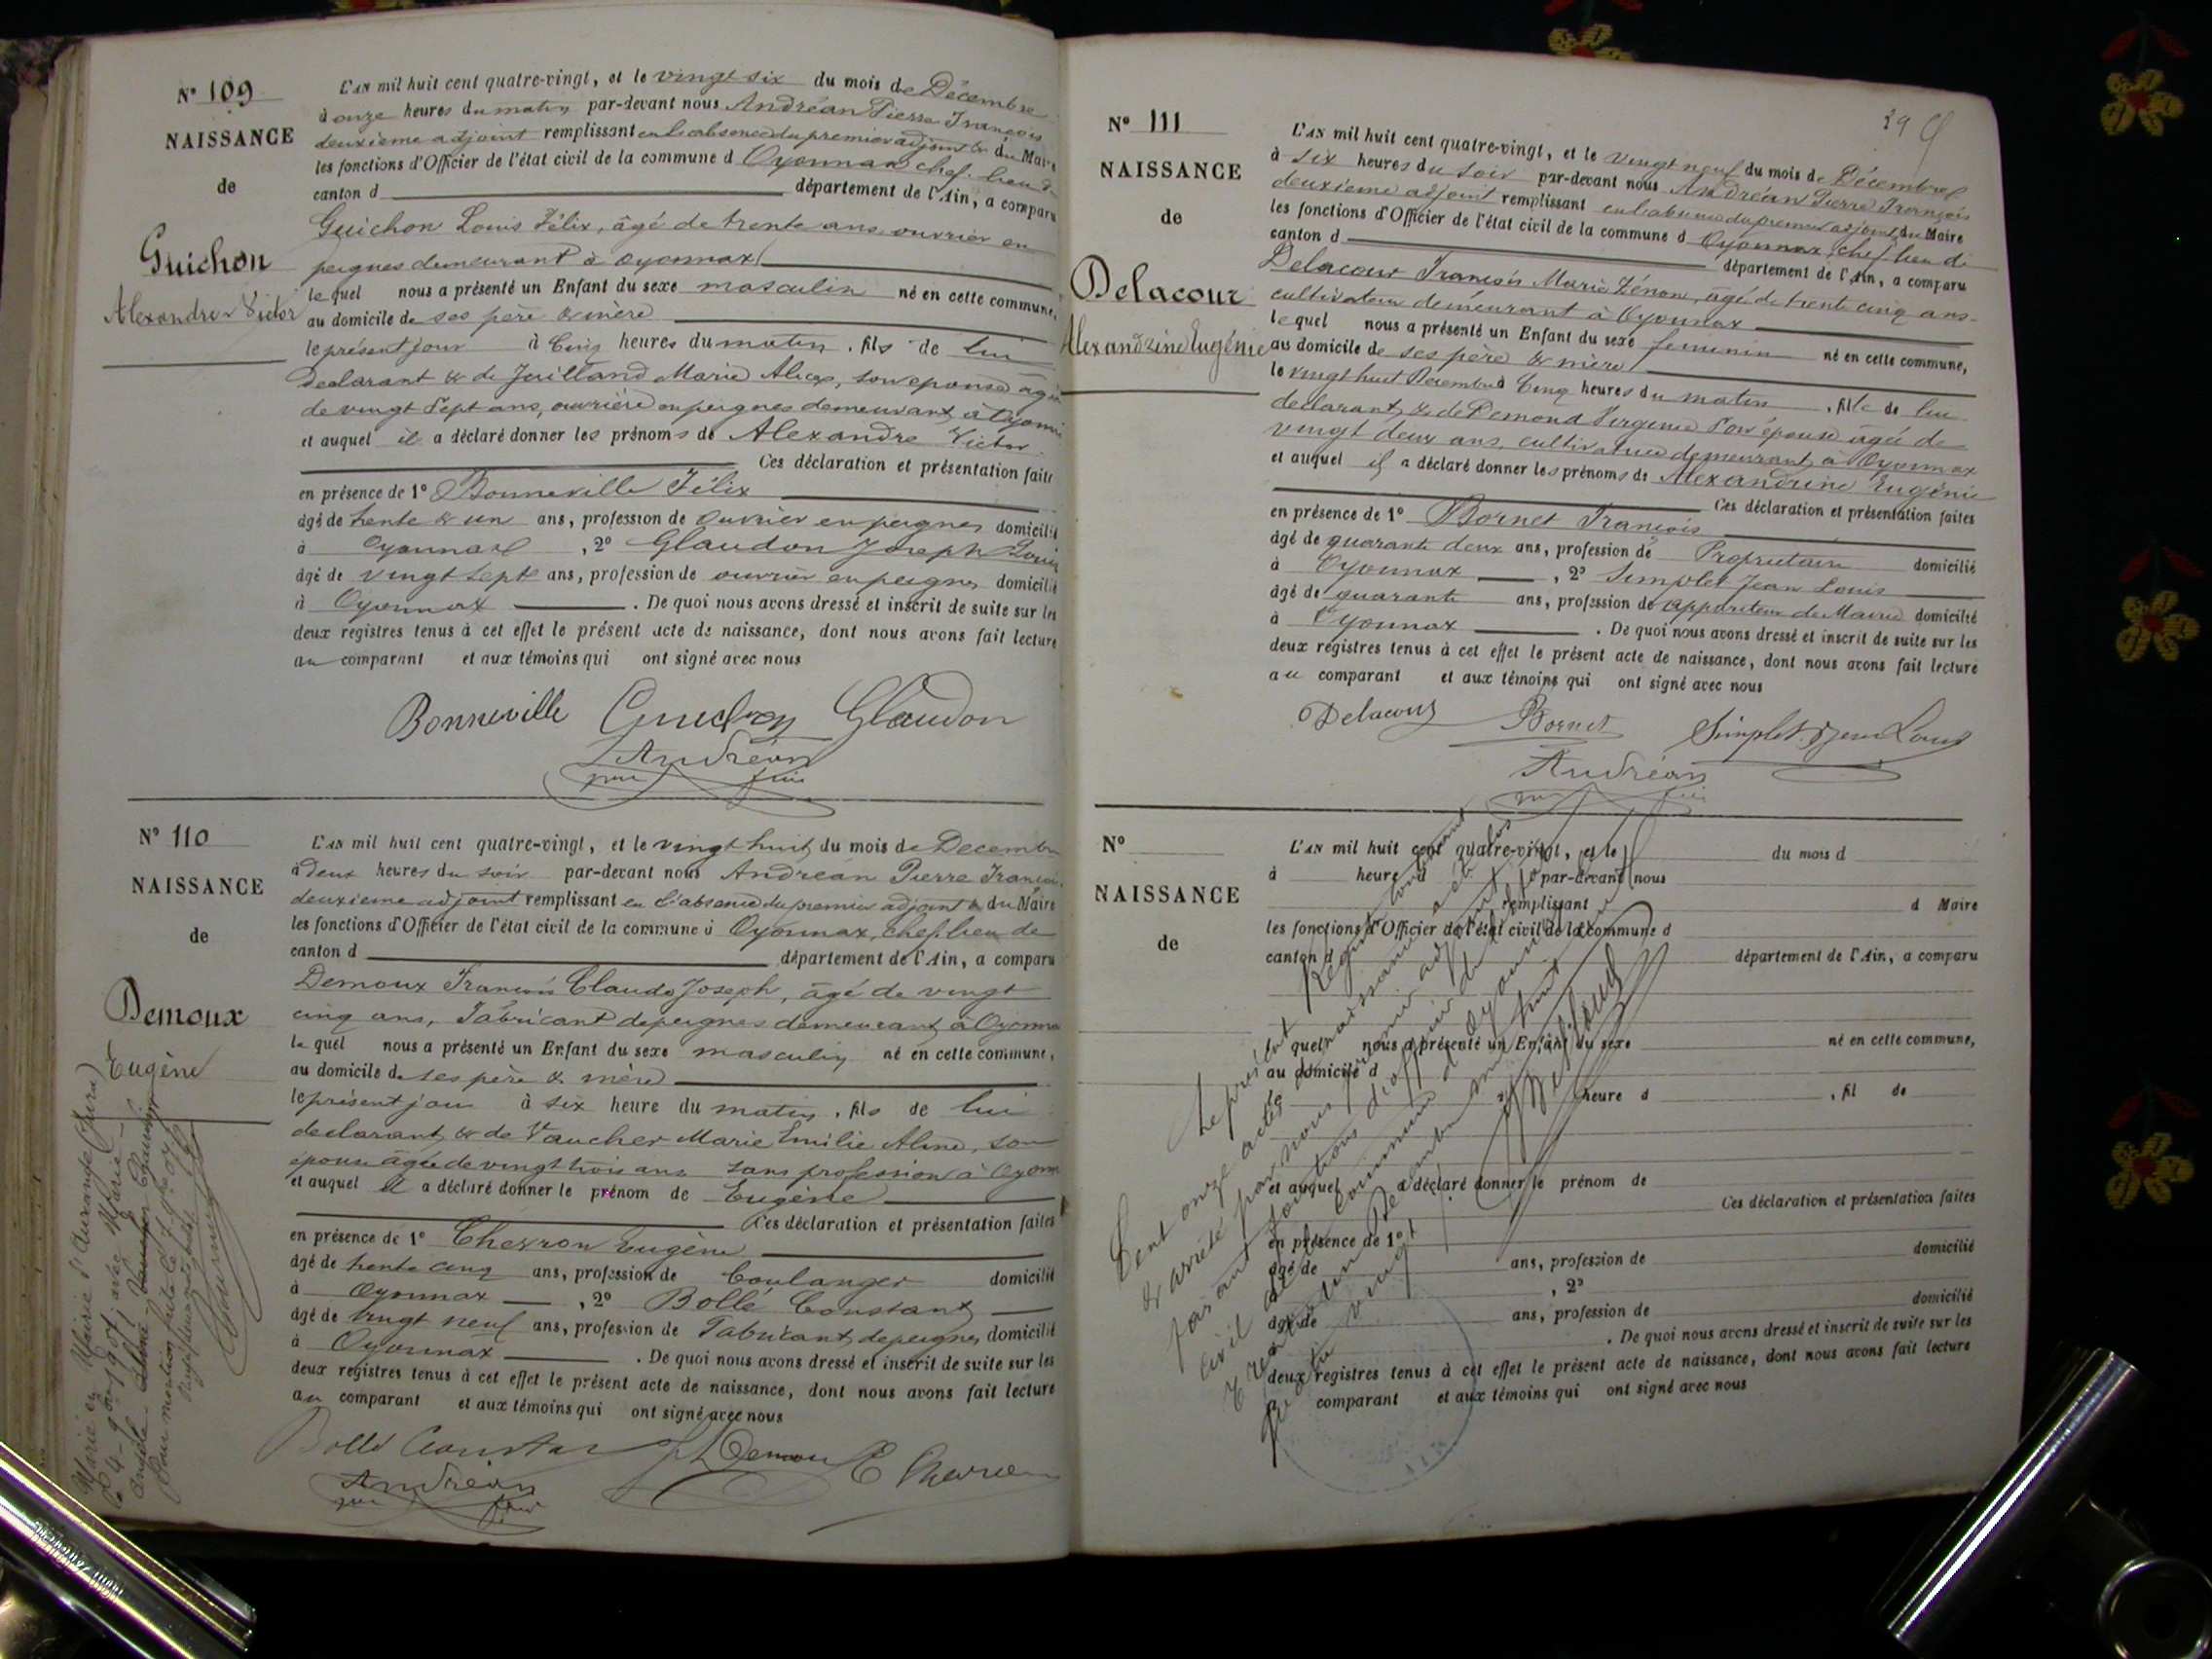 N° 109
NAISSANCE
de
Guichon
Alexandre Victor
L'AN mil huit cent quatre-vingt, et le vingt six du mois de Décembre
à onze heures du matin par-devant nous Andréan Pierre François
deuxieme adjoint remplissant en l'absence du premier adjoint & du Maire
les fonctions d'Officier de l'état civil de la commune d Oyonnax chef-lieu de
canton d département de l'Ain, a comparu
Guichon Louis Félix, âgé de trente ans ouvrier en
peignes demeurant à Oyonnax
lequel nous a présenté un Enfant du sexe masculin né en cette commune,
au domicile de ses père & mère
le présent jour à Cinq heures du matin, fils de lui
declarant & de Juilland Marie Alice, son epouse agée
de vingt sept ans, ouvrière en peignes demeurant à Oyonnax
et auquel il a déclaré donner les prénoms de Alexandre Victor
Ces déclaration et présentation faite
en présence de 1° Bonneville Félix
âgé de trente & un ans, profession de ouvrier en peignes domicilié
à Oyonnax, 2° Glaudon Joseph Louis
âgé de vingt sept ans, profession de ouvrier en peignes domicilié
à Oyonnax. De quoi nous avons dressé et inscrit de suite sur les
deux registres tenus à cet effet le présent acte de naissance, dont nous avons fait lecture
au comparant et aux témoins qui ont signé avec nous
Bonneville Guichon Glaudon
Andréan
N° 110
NAISSANCE
de
Demoux
Eugène
L'AN mil huit cent quatre-vingt, et le vingt huit du mois de Decembre
à deux heures du soir par-devant nous Andréan Pierre François
deuxieme adjoint remplissant en l'absence du premier adjoint & du Maire
les fonctions d'Officier de l'état civil de la commune d Oyonnax, chef-lieu de
canton d département de l'Ain, a comparu
Demoux François Claude Joseph, âgé de vingt
cinq ans, Fabricant de peignes demeurant à Oyonnax
lequel nous a présenté un Enfant du sexe masculin né en cette commune,
au domicile de ses père & mère
le présent jour à six heure du matin, fils de lui
declarant & de Vaucher Marie Emilie Aline, son
épouse âgée de vingt trois ans sans profession à Oyonnax
et auquel il a déclaré donner le prénom de Eugène
Ces déclaration et présentation faites
en présence de 1° Cherron Eugène
âgé de trente cinq ans, profession de boulanger domicilié
à Oyonnax, 2° Bollé Constant
âgé de vingt neuf ans, profession de Fabricant de peignes domicilié
à Oyonnax. De quoi nous avons dressé et inscrit de suite sur les
deux registres tenus à cet effet le présent acte de naissance, dont nous avons fait lecture
au comparant et aux témoins qui ont signé avec nous
Bollé Constant Demoux E Cherron
Andréan
Marié en Mairie d' (Jura)
le 4 - 9 1907 avec Marie
Pour mention faite le
N° 111
NAISSANCE
de
Delacour
Alexandrine Eugénie
L'AN mil huit cent quatre-vingt, et le vingt neuf du mois de Décembre
à six heures du soir par-devant nous Andréan Pierre François
deuxieme adjoint remplissant en l'absence du premier adjoint & du Maire
les fonctions d'Officier de l'état civil de la commune d Oyonnax, chef lieu de
canton d département de l'Ain, a comparu
Delacour François Marie Zénon, âgé de trente cinq ans
cultivateur demeurant à Oyonnax
lequel nous a présenté un Enfant du sexe feminin né en cette commune,
au domicile de ses père & mère
le vingt huit Décembre à Cinq heures du matin, fille de lui
declarant & de Demond Virginie son épouse âgée de
vingt deux ans, cultivatrice demeurant à Oyonnax
et auquel il a déclaré donner les prénoms de Alexandrine Eugénie
Ces déclaration et présentation faites
en présence de 1° Bornet François
âgé de quarante deux ans, profession de Propriétaire domicilié
à Oyonnax, 2° Simplet Jean Louis
âgé de quarante ans, profession de appariteur de Mairie domicilié
à Oyonnax. De quoi nous avons dressé et inscrit de suite sur les
deux registres tenus à cet effet le présent acte de naissance, dont nous avons fait lecture
au comparant et aux témoins qui ont signé avec nous
Delacour Bornet Simplet Jean Louis
Andréan
N°
NAISSANCE
de
L'AN mil huit cent quatre-vingt, et le du mois d
à heure d par-devant nous
remplissant d Maire
les fonctions d'Officier de l'état civil de la commune d
canton d département de l'Ain, a comparu
quel nous a présenté un Enfant du sexe né en cette commune,
au domicile d
heure d, fil de
et auquel a déclaré donner le prénom de
Ces déclaration et présentation faites
en présence de 1°
âgé de ans, profession de domicilié
, 2°
âgé de ans, profession de domicilié
. De quoi nous avons dressé et inscrit de suite sur les
deux registres tenus à cet effet le présent acte de naissance, dont nous avons fait lecture
a comparant et aux témoins qui ont signé avec nous
Le présent Registre contenant
Cent onze actes de naissance a été clos
& arrêté par nous premier adjoint
faisant fonctions d'officier de l'état
civil de la commune d'Oyonnax
mil huit
cent quatre vingt